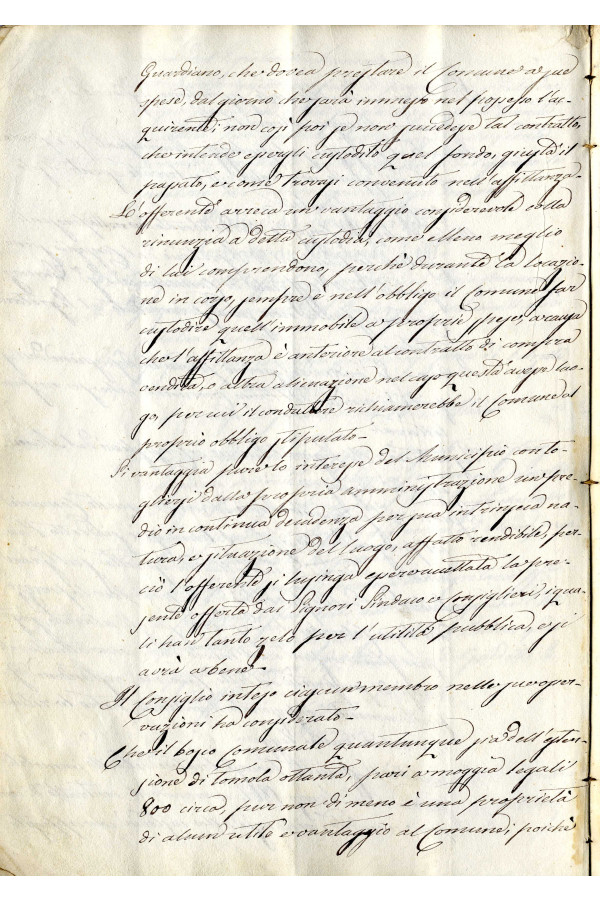 Guardiano, che dovea prestare il Comune a sue
spese, dal giorno che sarà immesso nel possesso l'ac-
quirente; non così poi se non succedesse tal contratto,
che intende essergli custodito quel fondo, giusta il
passato, e come trovasi convenuto nell'affittanza-
L'offerente arreca un vantaggio considerevole colla
rinunzia a detta custodia, come Elleno meglio
di lui comprendono, perchè durante la locazio-
ne in corso, sempre è nell'obbligo il Comune far
custodire quell'immobile a proprie spese, a causa
che l'affittanza è anteriore al contratto di compra
vendita, o altra alienazione nel caso questa avesse luo-
go, per cui il conduttore richiamerebbe il Comune al
proprio obbligo stipulato-
Si vantaggia pure lo interesse del Municipio con to-
gliersi dalla propria amministrazione un pre-
dio in continua decadenza per sua intrinseca na-
tura, e situazione del luogo, affatto rendibile, per-
ciò l'offerente si lusinga essere accettata la pre-
sente offerta dai Signori Sindaco e Consiglieri, i qua-
li han tanto zelo per l'utilità pubblica, e si
avrà a bene-
Il Consiglio inteso ciascun membro nelle sue osser-
vazioni ha considerato-
Che il bosco Comunale quantunque sia dell'esten-
sione di tomola ottanta, pari a moggia legali
800 circa, pur non di meno è una proprietà
di alcun utile e vantaggio al Comune; poichè